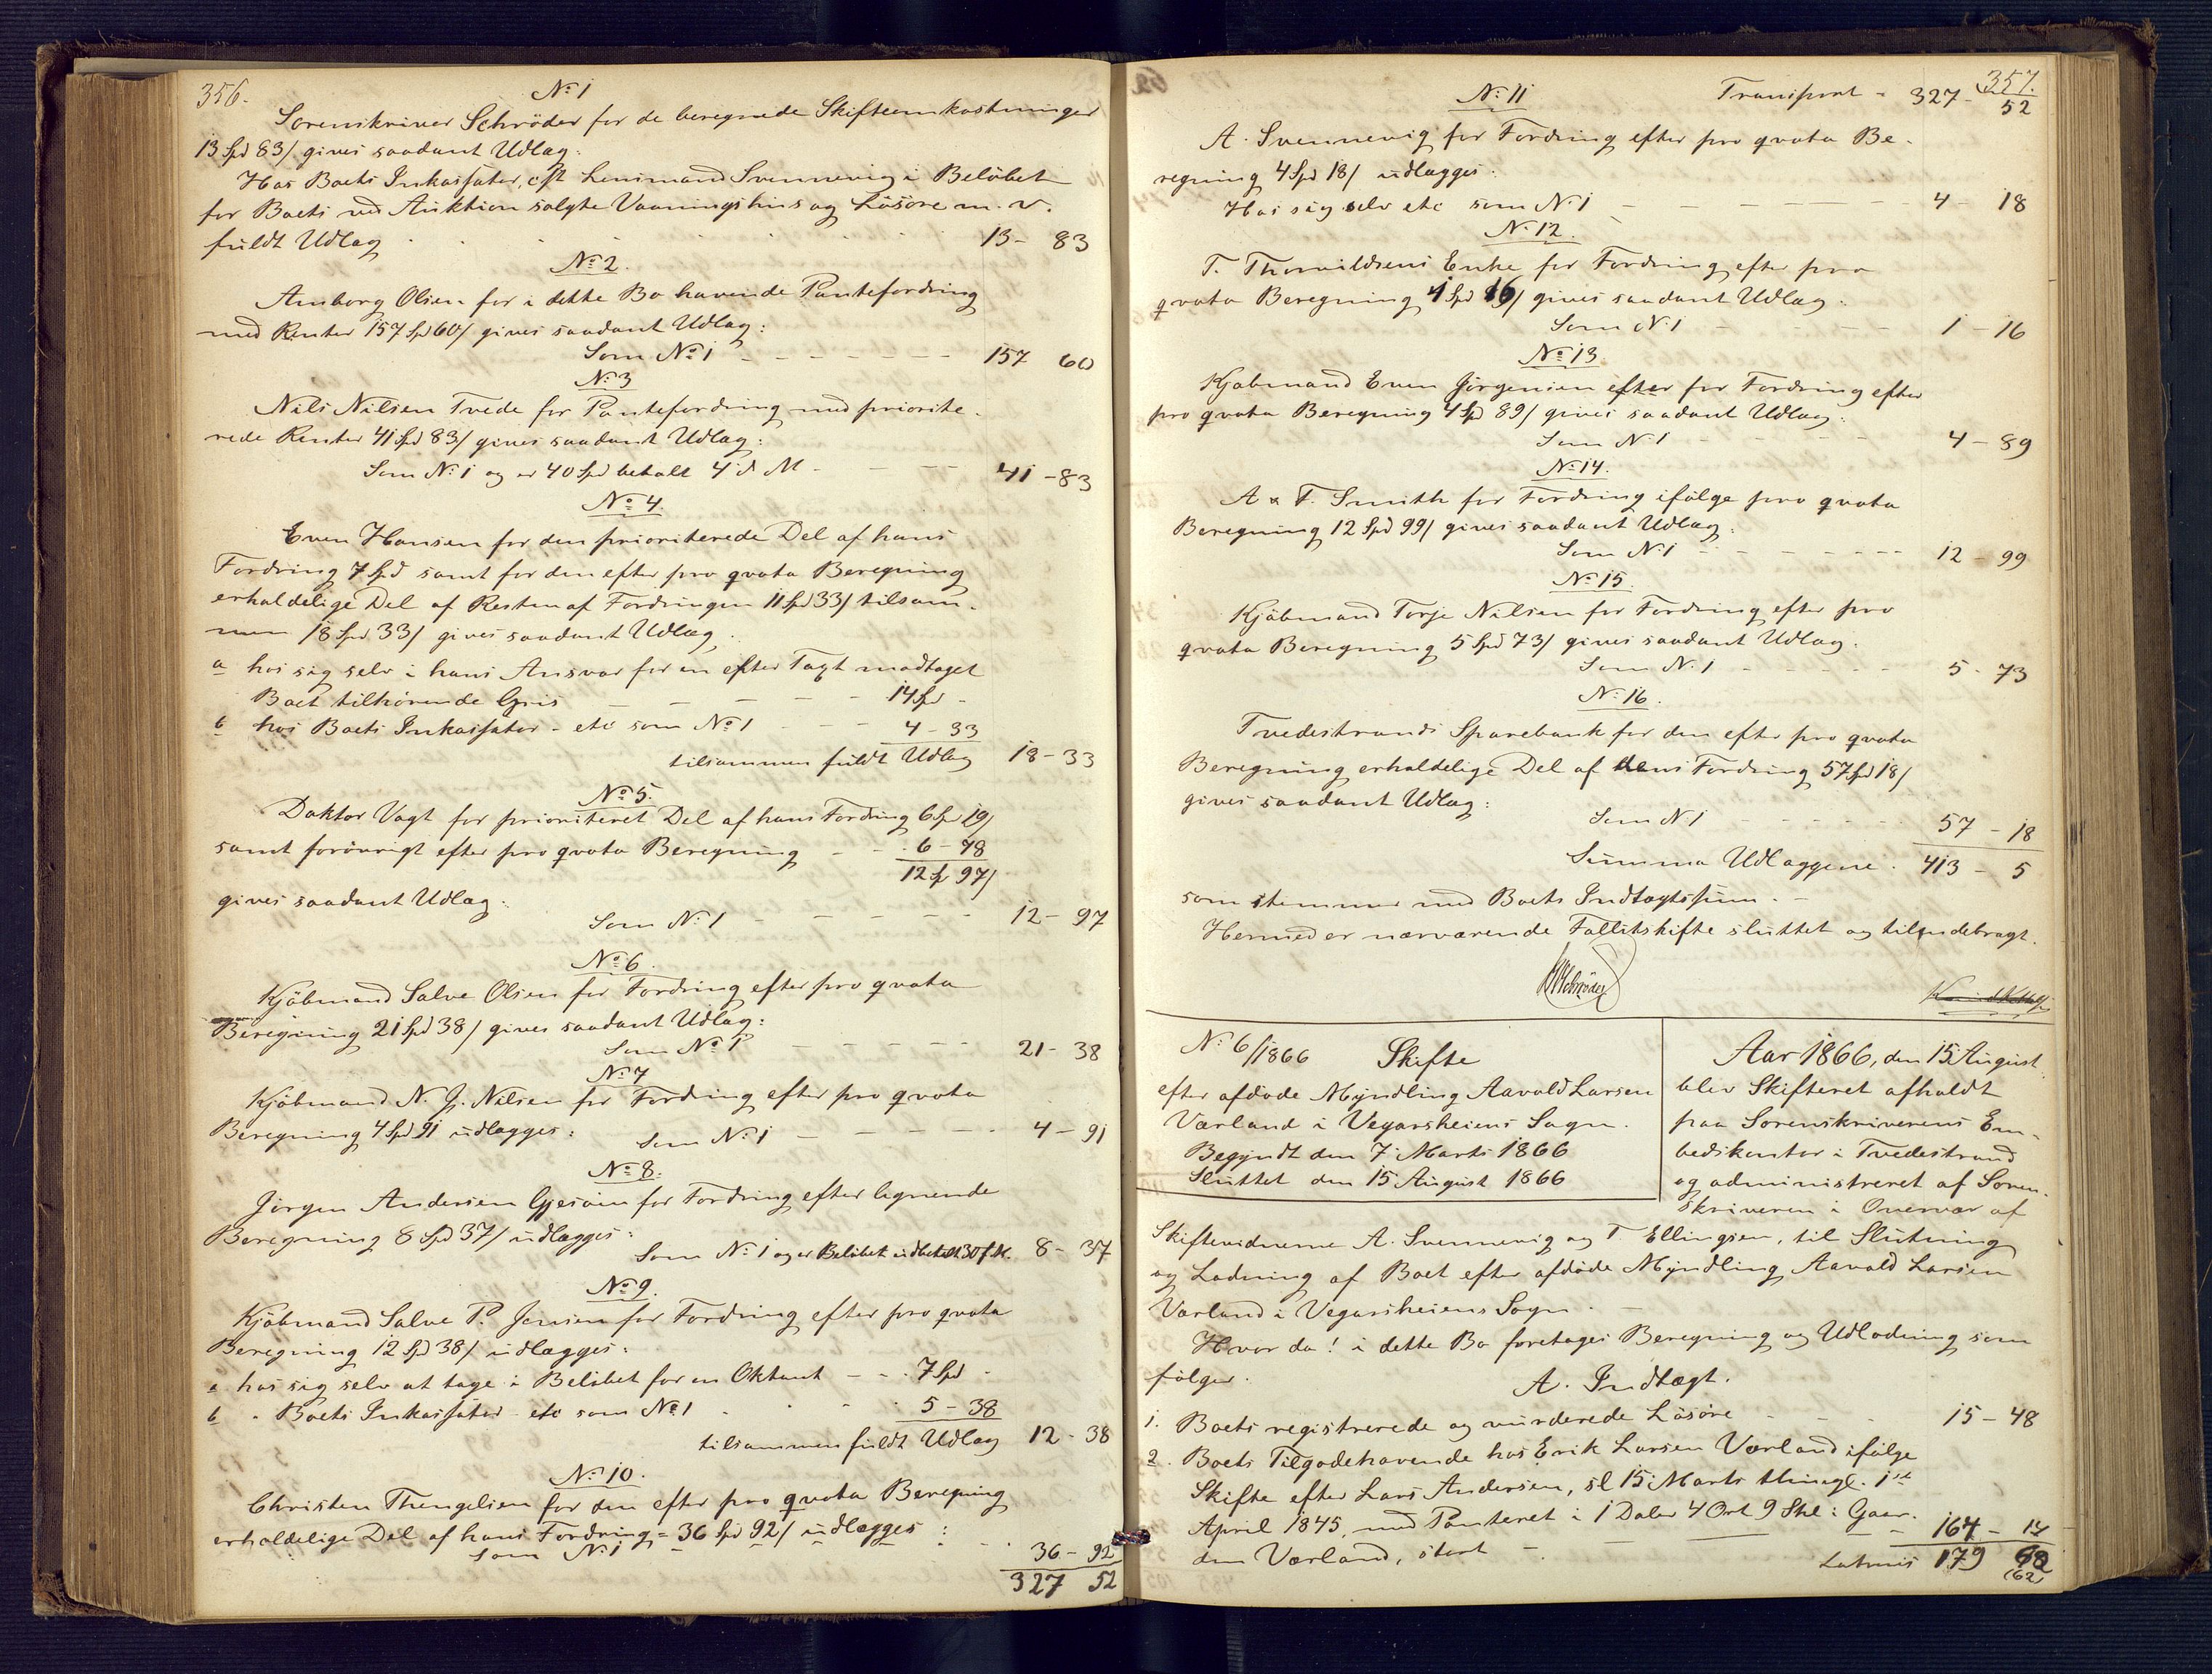 356.
No 1
Sorenskriver Schröder for de beregnede Skifteomkostninger
13 Spd 83/ gives saadant Udlæg:
Hos Boets Inkassator, cst Lensmand Svennevig i Beløbet
for Boets ved Auktion solgte Vaaningshus og Løsøre m. v.
fuldt Udlæg 13 - 83
No 2.
Anborg Olsen for i dette Bo havende Pantefordring
med Renter 157 Spd 60/ gives saadant Udlæg:
Som No 1 - - - 157 60
No 3
Nils Nilsen Tvede for Pantefordring med priorite-
rede Renter 41 Spd 83/ gives saadant Udlæg:
Som No 1 og er 40 Spd betalt 4 d. M. - 41 - 83
No 4.
Even Hansen for den prioriterede Del af hans
Fordring 7 Spd samt for den efter pro qvota Beregning
erholdelige Del af Resten af Fordringen 11 Spd 33/ tilsam-
men 18 Spd 33/ gives saadant Udlæg:
a hos sig selv i hans Ansvar for en efter Taxt modtaget
Boet tilhørende Gris - - - 14 Spd -
b hos Boets Inkassator - etc som No 1 - - 4 - 33
tilsammen fuldt Udlæg 18 - 33
No 5.
Doktor Vogt for prioriteret Del af hans Fordring 6 Spd 19/
samt forøvrigt efter pro qvota Beregning - - 6 - 78
12 Sp 97/
gives saadant Udlæg:
Som No 1 - - - 12 - 97
No 6.
Kjøbmand Salve Olsen for Fordring efter pro qvota
Beregning 21 Spd 38/ gives saadant Udlæg:
Som No 1 - - - 21 - 38
No 7
Kjøbmand N. J. Nilsen for Fordring efter pro qvota
Beregning 4 Spd 91 udlægges:
Som No 1 - - - 4 - 91
No 8.
Jørgen Andersen Gjesøen for Fordring efter lignende
Beregning 8 Spd 37/ udlægges:
Som No 1 og er Beløbet udbetalt 30 f. M. 8 - 37
No 9.
Kjøbmand Salve P. Jensen for Fordring efter pro qvota
Beregning 12 Spd 38/ udlægges:
a hos sig selv at tage i Beløbet for en Oktant - - 7 Spd -
b " Boets Inkassator - etc som No 1 5 - 38
tilsammen fuldt Udlæg 12 - 38
No 10.
Christen Thengelsen for den efter pro qvota Beregning
erholdelige Del af hans Fordring = 36 Spd 92/ udlægges:
Som No 1 36 - 92
327 52
357.
No 11 Transport - 327 - 52
A. Svennevig for Fordring efter pro qvota Be-
regning 4 Spd 18/ udlægges:
Hos sig selv etc som No 1 - - - 4 - 18
No 12.
T. Thorvildsens Enke for Fordring efter pro
qvota Beregning 1 Spd 16/ gives saadant Udlæg:
Som No 1 - - - 1 - 16
No 13.
Kjøbmand Even Jørgensen efter for Fordring efter
pro qvota Beregning 4 Spd 89/ gives saadant Udlæg:
Som No 1 - - - 4 - 89
No 14.
A & F. Smith for Fordring ifølge pro qvota
Beregning 12 Spd 99/ gives saadant Udlæg:
Som No 1 - - - 12 - 99
No 15.
Kjøbmand Torje Nilsen for Fordring efter pro
qvota Beregning 5 Spd 73/ gives saadant Udlæg:
Som No 1 - - - 5 - 73
No 16.
Tvedestrands Sparebank for den efter pro qvota
Beregning erholdelige Del af dens Fordring 57 Spd 18/
gives saadant Udlæg:
Som No 1 - - - 57 - 18
Summa Udlæggene. 413 - 5
som stemmer med Boets Indtægtssum. -
Hermed er nærværende Fallitskifte sluttet og tilendebragt.
Schrøder
No 6/1866 Skifte
efter afdøde Myndling Aavald Larsen
Værland i Vegarsheiens Sogn.
Begyndt den 7 Marts 1866
Sluttet den 15 August 1866
Aar 1866, den 15 August
blev Skifteret afholdt
paa Sorenskriverens Em-
bedskontor i Tvedestrand
og administreret af Soren-
skriveren i Overvær af
Skiftevidnerne A. Svennevig og T. Ellingsen, til Slutning
og Lodning af Boet efter afdøde Myndling Aavald Larsen
Værland i Vegarsheiens Sogn. -
Hvor da! i dette Bo foretages Beregning og Udlodning som
følger.
A. Indtægt.
1. Boets registrerede og vurderede Løsøre - - - 15 - 48
2. Boets Tilgodehavende hos Erik Larsen Værland ifølge
Skifte efter Lars Andersen, sl 15 Marts thingl. 1ste
April 1845, med Panteret i 1 Daler 4 Ort 9 Skl: Gaar-
den Værland, stort - - - 164 - 14
Latus 179 62
(62)